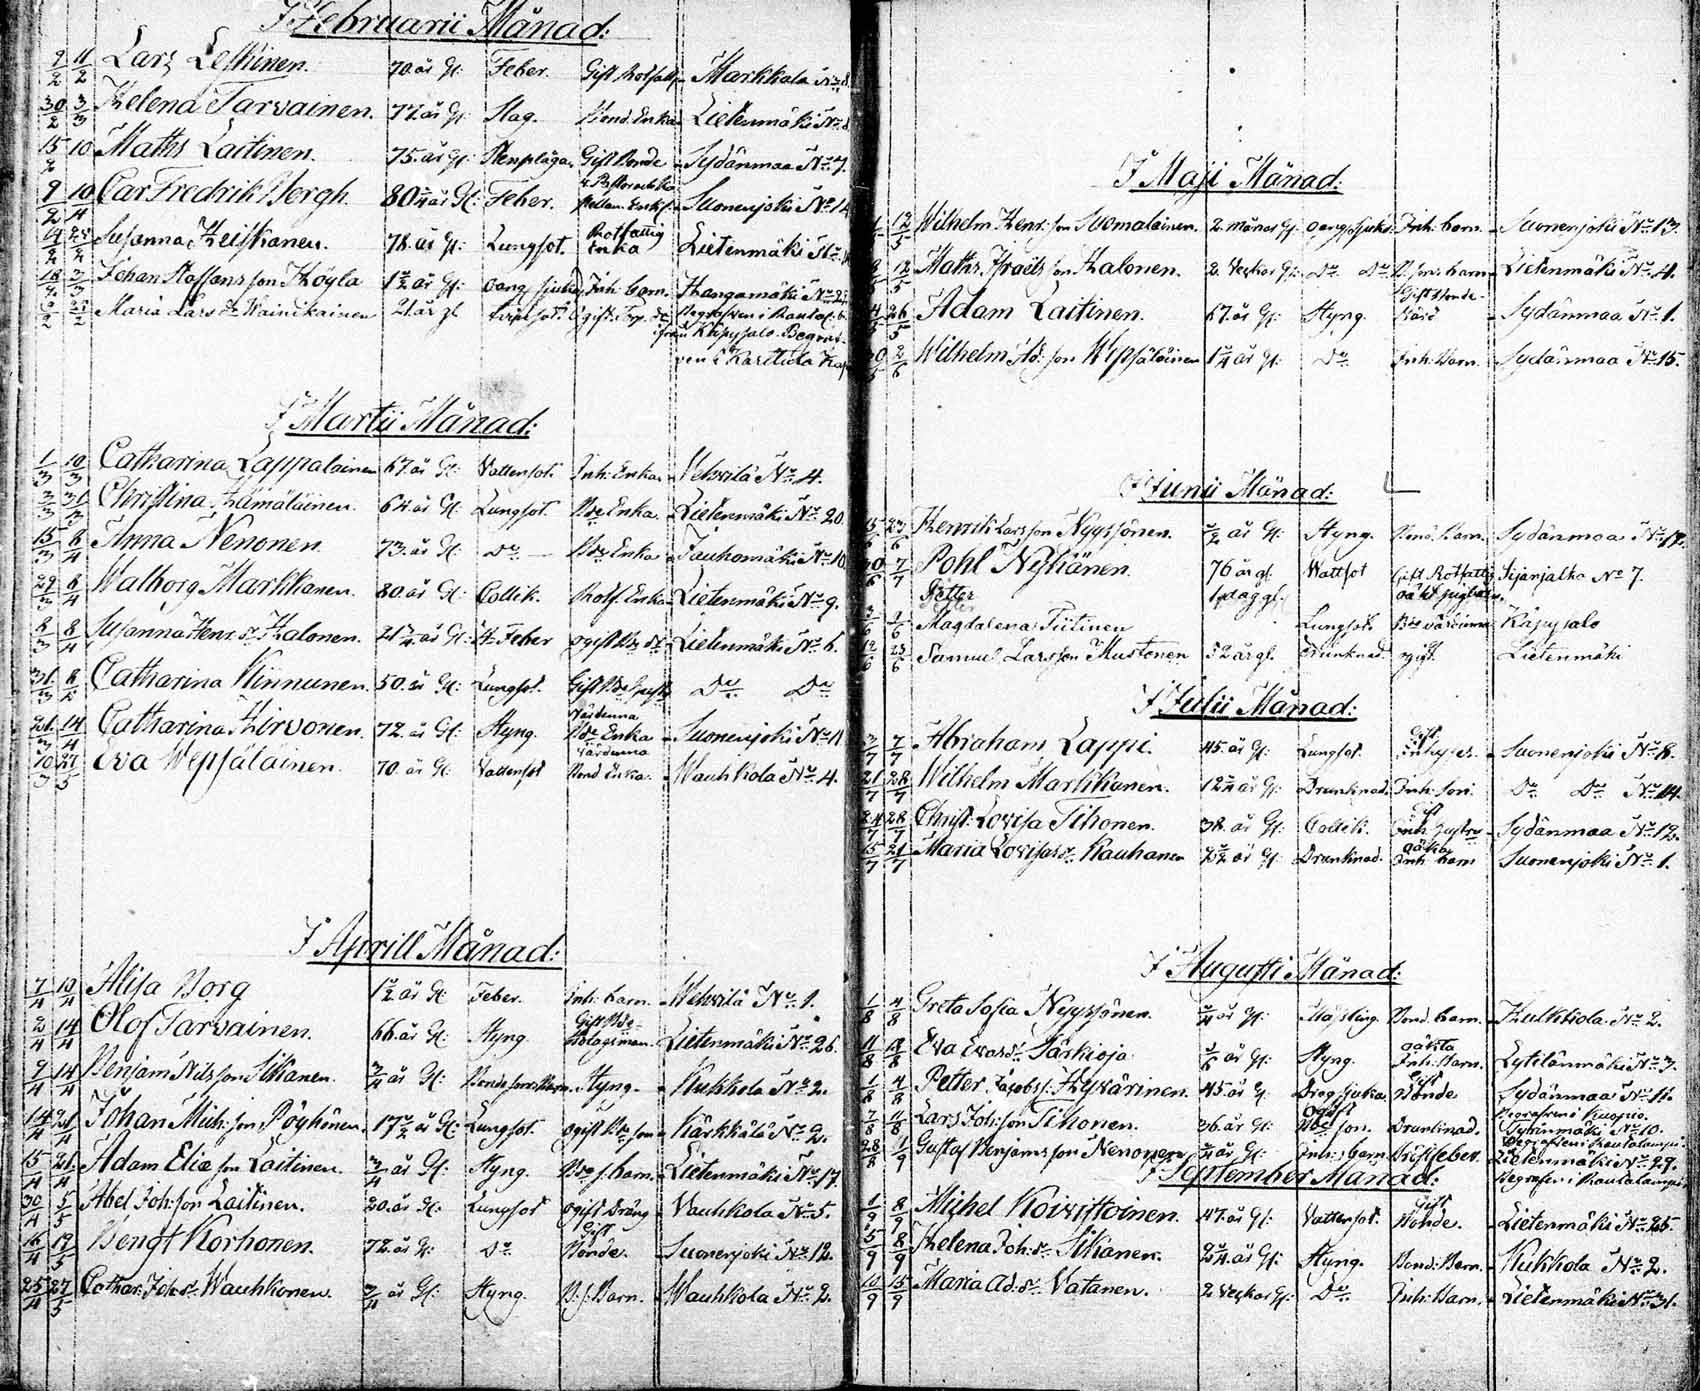 I Februarii Månad:
9/2 11/2 Lars Leskinen. 70. år Gl: Feber. Gift Rotfatt. Markkala No 8
30/2 3/3 Helena Tarvainen. 77. år Gl: Slag. Bond. Enka Lietenmäki No 8
15/2 10 Maths Laitinen. 75. år Gl: Stenplåga. Gift Bonde Sydänmaa No 7.
9/2 10/4 Carl Fredrik Bergh. 80 år Gl: Feber. Suonenjoki No 14
14/2 Susanna Heiskanen. 78. år Gl: Lungsot. Rotfattig Enka Lietenmäki No
18/2 3/3 Johan Staffans son Köylä 1 1/2 år Gl: oang. sjukd. Inh: barn. Hangamäki No
Maria Lars Dr Wainikainen 21 år gl. ogift
ifrån Käpysalo. Begraf-
ven i Karttula Kap
I Martii Månad:
1/3 10/3 Catharina Lappalainen 67. år Gl: Vattensot. Inh: Enka Vehvilä No 4.
3/3 31/3 Christina Hämäläinen. 64. år Gl: Lungsot. Bde Enka. Lietenmäki No 20.
15/3 6/4 Anna Nenonen. 73. år Gl: Do Bde Enka Jauhomäki No 10.
29/3 8/4 Walborg Markkanen. 80. år Gl: Collik. Rotf. Enka Lietenmäki No 9.
8/3 8/4 Susanna Henr. dr Halonen. 21 år Gl: H. Feber ogift Bde dr Lietenmäki No 6.
31/3 Catharina Kinnunen. 50. år Gl: Lungsot. Gift Bde Do Do
21/3 14/4 Catharina Hirvonen. 72. år Gl: Styng. Värdinna Bde Enka Suonenjoki No 11
10/3 27/5 Eva Wepsäläinen. 70. år Gl: Vattensot Värdinna Bond Enka. Wauhkola No 4.
I Aprill Månad:
7/4 10/4 Alisa Borg 1 1/2 år Gl: Feber. Inh: barn. Vehvilä No 1.
2/4 14/4 Olof Tarvainen. 66. år Gl: Styng. Gift Bde Bolagsman. Lietenmäki No 26.
9/4 14/4 Benjam Nils son Sikanen. 3/4 år Gl: Bonde sons Barn. Styng. Kukkola No 2.
14/4 21/4 Johan Mich: son Pöyhönen. 17 1/2 år Gl: Lungsot. ogift Bde son Kärkkälä No 2.
15/4 21/4 Adam Eliæ son Laitinen. 3/4 år Gl: Styng. Bde s. barn. Lietenmäki No 17.
30/4 5/5 Abel Joh: son Laitinen. 20. år Gl: Lungsot ogift Dräng Vauhkola No 5.
16/4 12/5 Bengt Korhonen. 72. år Gl: Do Gift Bonde. Suonenjoki No 12.
25/4 27/5 Cathar. Joh: dr Wauhkonen. 3/4 år Gl: Styng. B. s. Barn. Wauhkola No 2.
I Maji Månad:
12/5 Wilhelm Henr: son Suomalainen. 2. månar Gl: oang. sjukd. Inh: barn. Suonenjoki No 13.
12/5 Maths Israëls son Halonen. 2. Veckor Gl: Do Do B. sons barn Lietenmäki No 4.
26/5 Adam Laitinen. 67. år Gl: Styng. Gift Bonde Sydänmaa No 1.
2/6 Wilhelm Ad: son Wepsäläinen 1 1/4 år Gl: Do Inh: Barn. Sydänmaa No 15.
I Junii Månad:
15/6 23/6 Henrik Larsson Nyyssönen. 1/2 år Gl: Styng. Bond: Barn. Sydänmaa No 12.
30/6 7/7 Pohl Nyhänen. 76 år gl. Vattsot Gift Rotfattig Iijärjalka No 7.
Petter 1 dag gl.
Magdalena Tiitinen Lungsot. Bde värdinna Käpysalo
12/6 23/6 Samuel Larsson Mustonen 52 år gl. Drunknad. ogift. Lietenmäki
I Julii Månad:
3/7 7/7 Abraham Lappi. 45. år Gl: Lungsot. Gift Inhyses. Suonenjoki No 8.
21/7 28/7 Wilhelm Markkanen. 12 1/4 år Gl: Drunknad. Inh: son. Do Do No 14.
24/7 28/7 Christ: Lovisa Tihonen. 38. år Gl: Collik. Gift Inh: hustru Sydänmaa No 12.
15/7 21/7 Maria Lovisas dr Kauhanen 2 1/2 år Gl: Drunknad. oäkta Inh: barn Suonenjoki No 1.
I Augusti Månad:
1/8 4/8 Greta Sofia Nyyssönen. 3/4 år Gl: Mässling. Bond. barn. Kulkkola No 2.
11/8 18/8 Eva Evas dr Särkioja. år Gl: Styng. oäkta Inh: Barn. Lytilänmäki No 3.
1/8 4/8 Petter Jacobs s. Hyvärinen. 45. år Gl: Dragsjuka Gift Bonde Sydänmaa No 11.
Begrafven i Kuopio.
7/8 11/8 Lars Joh: son Tihonen. 36. år Gl: ogift Bde son. Drunknad. No 10.
Begrafven i Rautalampi
28/8 1/9 Gustaf Benjams son Nenonen år Gl: Inh: barn Bröstfeber. Lietenmäki No 29.
Begrafven i Rautalampi
I September Månad:
1/9 8/9 Michel Koivistoinen. 47. år Gl: Vattensot. Gift Bonde. Lietenmäki No 25.
5/9 8/9 Helena Joh: dr Sikanen. 2 1/4. år Gl: Styng. Bond: Barn. Kukkola No 2.
10/9 15/9 Maria Ad. dr Vatanen. 2 Veckor Gl: Do Inh: Barn. Lietenmäki No 31.